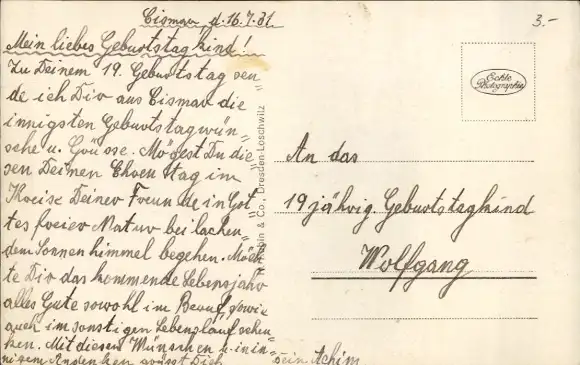 Cismar d. 16.7.31.
3.-
Mein liebes Geburtstagkind!
Zu Deinem 19. Geburtstag sen=
de ich Dir aus Cismar die
innigsten Geburtstagwün=
sche u. Grüsse. Mögest Du die
sen Deinen Ehrentag im
Kreise Deiner Freunde in Got
tes freier Natur bei lachen=
dem Sonnenhimmel begehen. Möch
te Dir das kommende Lebensjahr
alles Gute sowohl im Beruf, sowie
auch im sonstigen Lebenslauf schen=
ken. Mit diesen Wünschen u. in in=
nigem Andenken grüsst Dich
Dein Achim
& Co., Dresden-Loschwitz
Echte
Photographie
An das
19 jährig. Geburtstagkind
Wolfgang